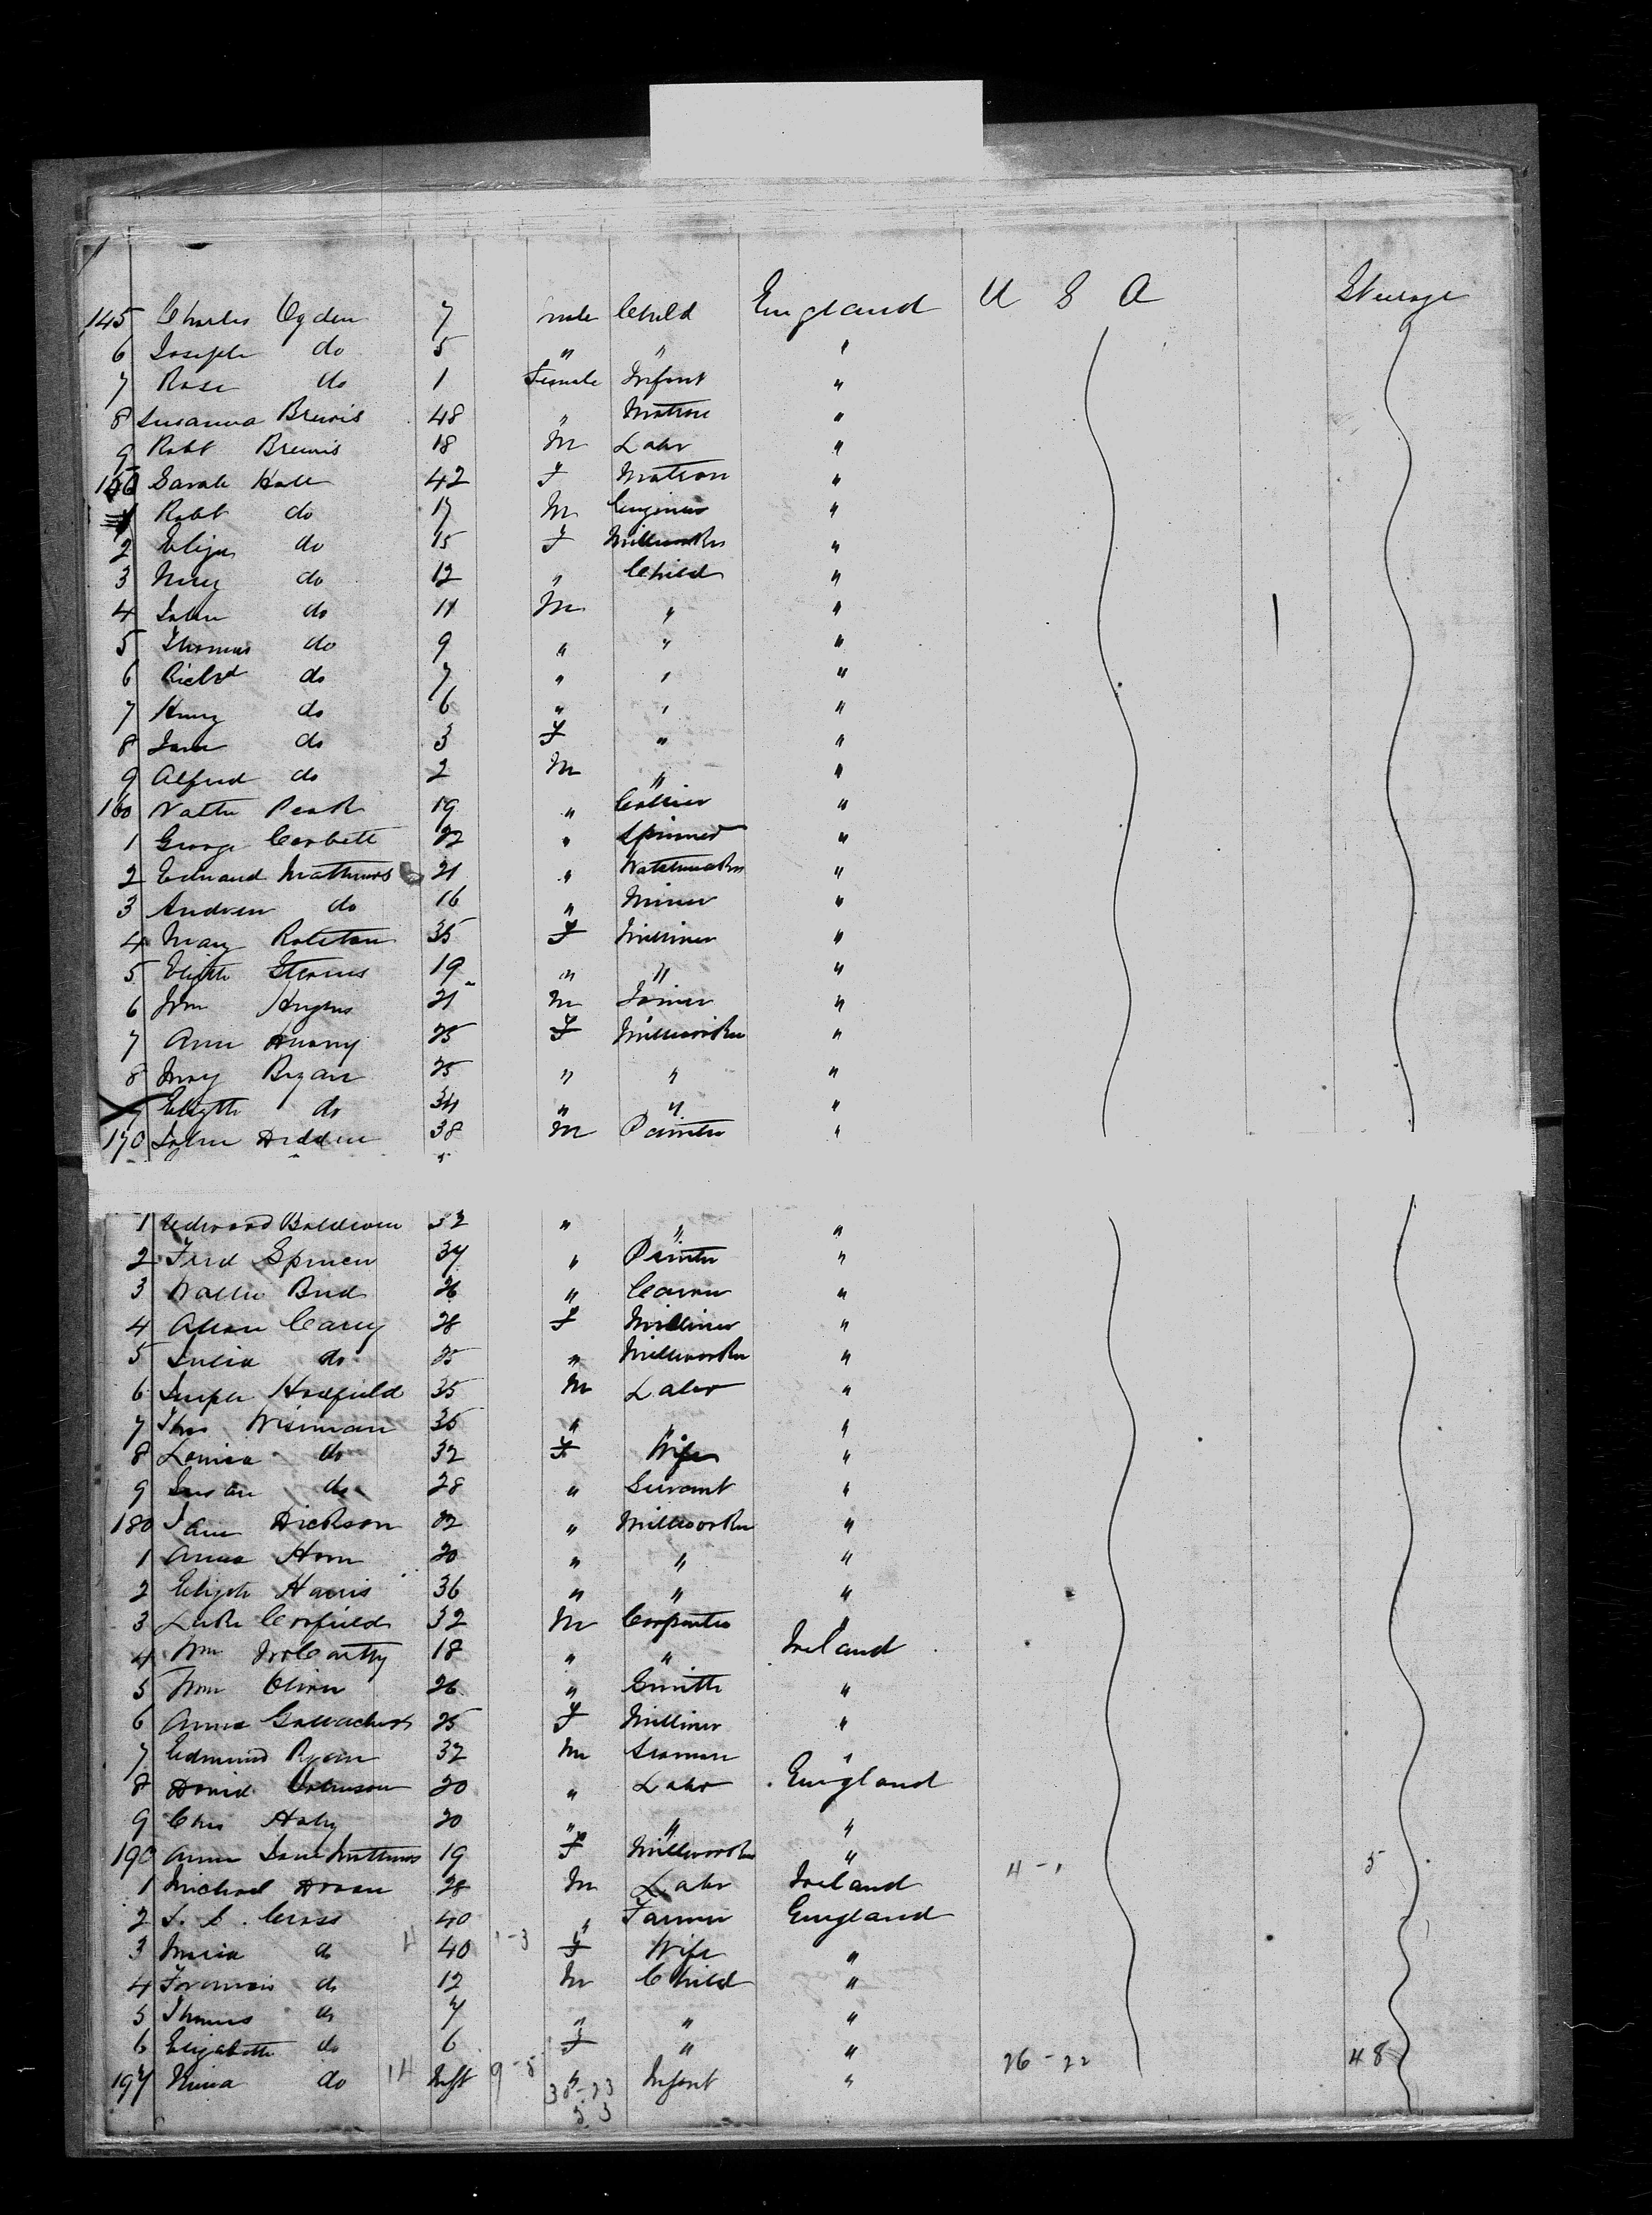 145 Charles Ogden 7 male Child England U S A Steerage
6 Joseph do 5 " " "
7 Rose do 1 Female Infant "
8 Susanna Brewis 48 " Matron "
9 Robt Brewis 18 M Labr "
150 Sarah Hall 42 F Matron "
1 Robt do 17 M Engineer "
2 Eliza do 15 F Millworker "
3 Mary do 12 " Child "
4 John do 11 M " "
5 Thomas do 9 " " "
6 Richd do 7 " " "
7 Henry do 6 " " "
8 Jane do 3 F " "
9 Alfred do 2 M " "
160 Walter Peak 19 " Collier "
1 George Corbett 22 " Spinner "
2 Edward Mathews 21 " Watchmaker "
3 Andrew do 16 " Miner "
4 Mary 35 F Milliner "
5 Elizth 19 " " "
6 Wm Hughes 21 M Joiner "
7 Ann 25 F Millworker "
8 Mary Ryan 25 " " "
9 Elizth do 34 " " "
170 John 38 M Painter "
1 Edward Baldwin 32 " " "
2 Fred Spencer 37 " Painter "
3 Walter Bird 26 " "
4 Carey 28 F Milliner "
5 Julia do 25 " Millworker "
6 Joseph Hadfield 35 M Labr "
7 Thos Wiseman 35 " " "
8 Louisa do 32 F Wife "
9 Susan do 28 " Servant "
180 Jane Dickson 22 " Millworker "
1 Anna Horn 20 " " "
2 Elizth Harris 36 " " "
3 Luke Corfield 32 M Carpenter "
4 Wm McCarthy 18 " " Ireland
5 Wm Oliver 26 " Smith "
6 Anna Gallacher 25 F Milliner "
7 Edmund Ryan 32 M Seaman "
8 David 20 " Labr England
9 Chas 20 " " "
190 Anna Jane Mathews 19 F Millworker " 4-1 5
1 Michael Doran 28 M Labr Ireland
2 Cross 40 " Farmer England
3 Maria do 4 40 1-3 F Wife "
4 Francis do 12 M Child "
5 Thomas do 7 " " "
6 Elizabeth do 6 F " "
197 do 14 Inft 9-8 " Infant " 26-22 48
38-23